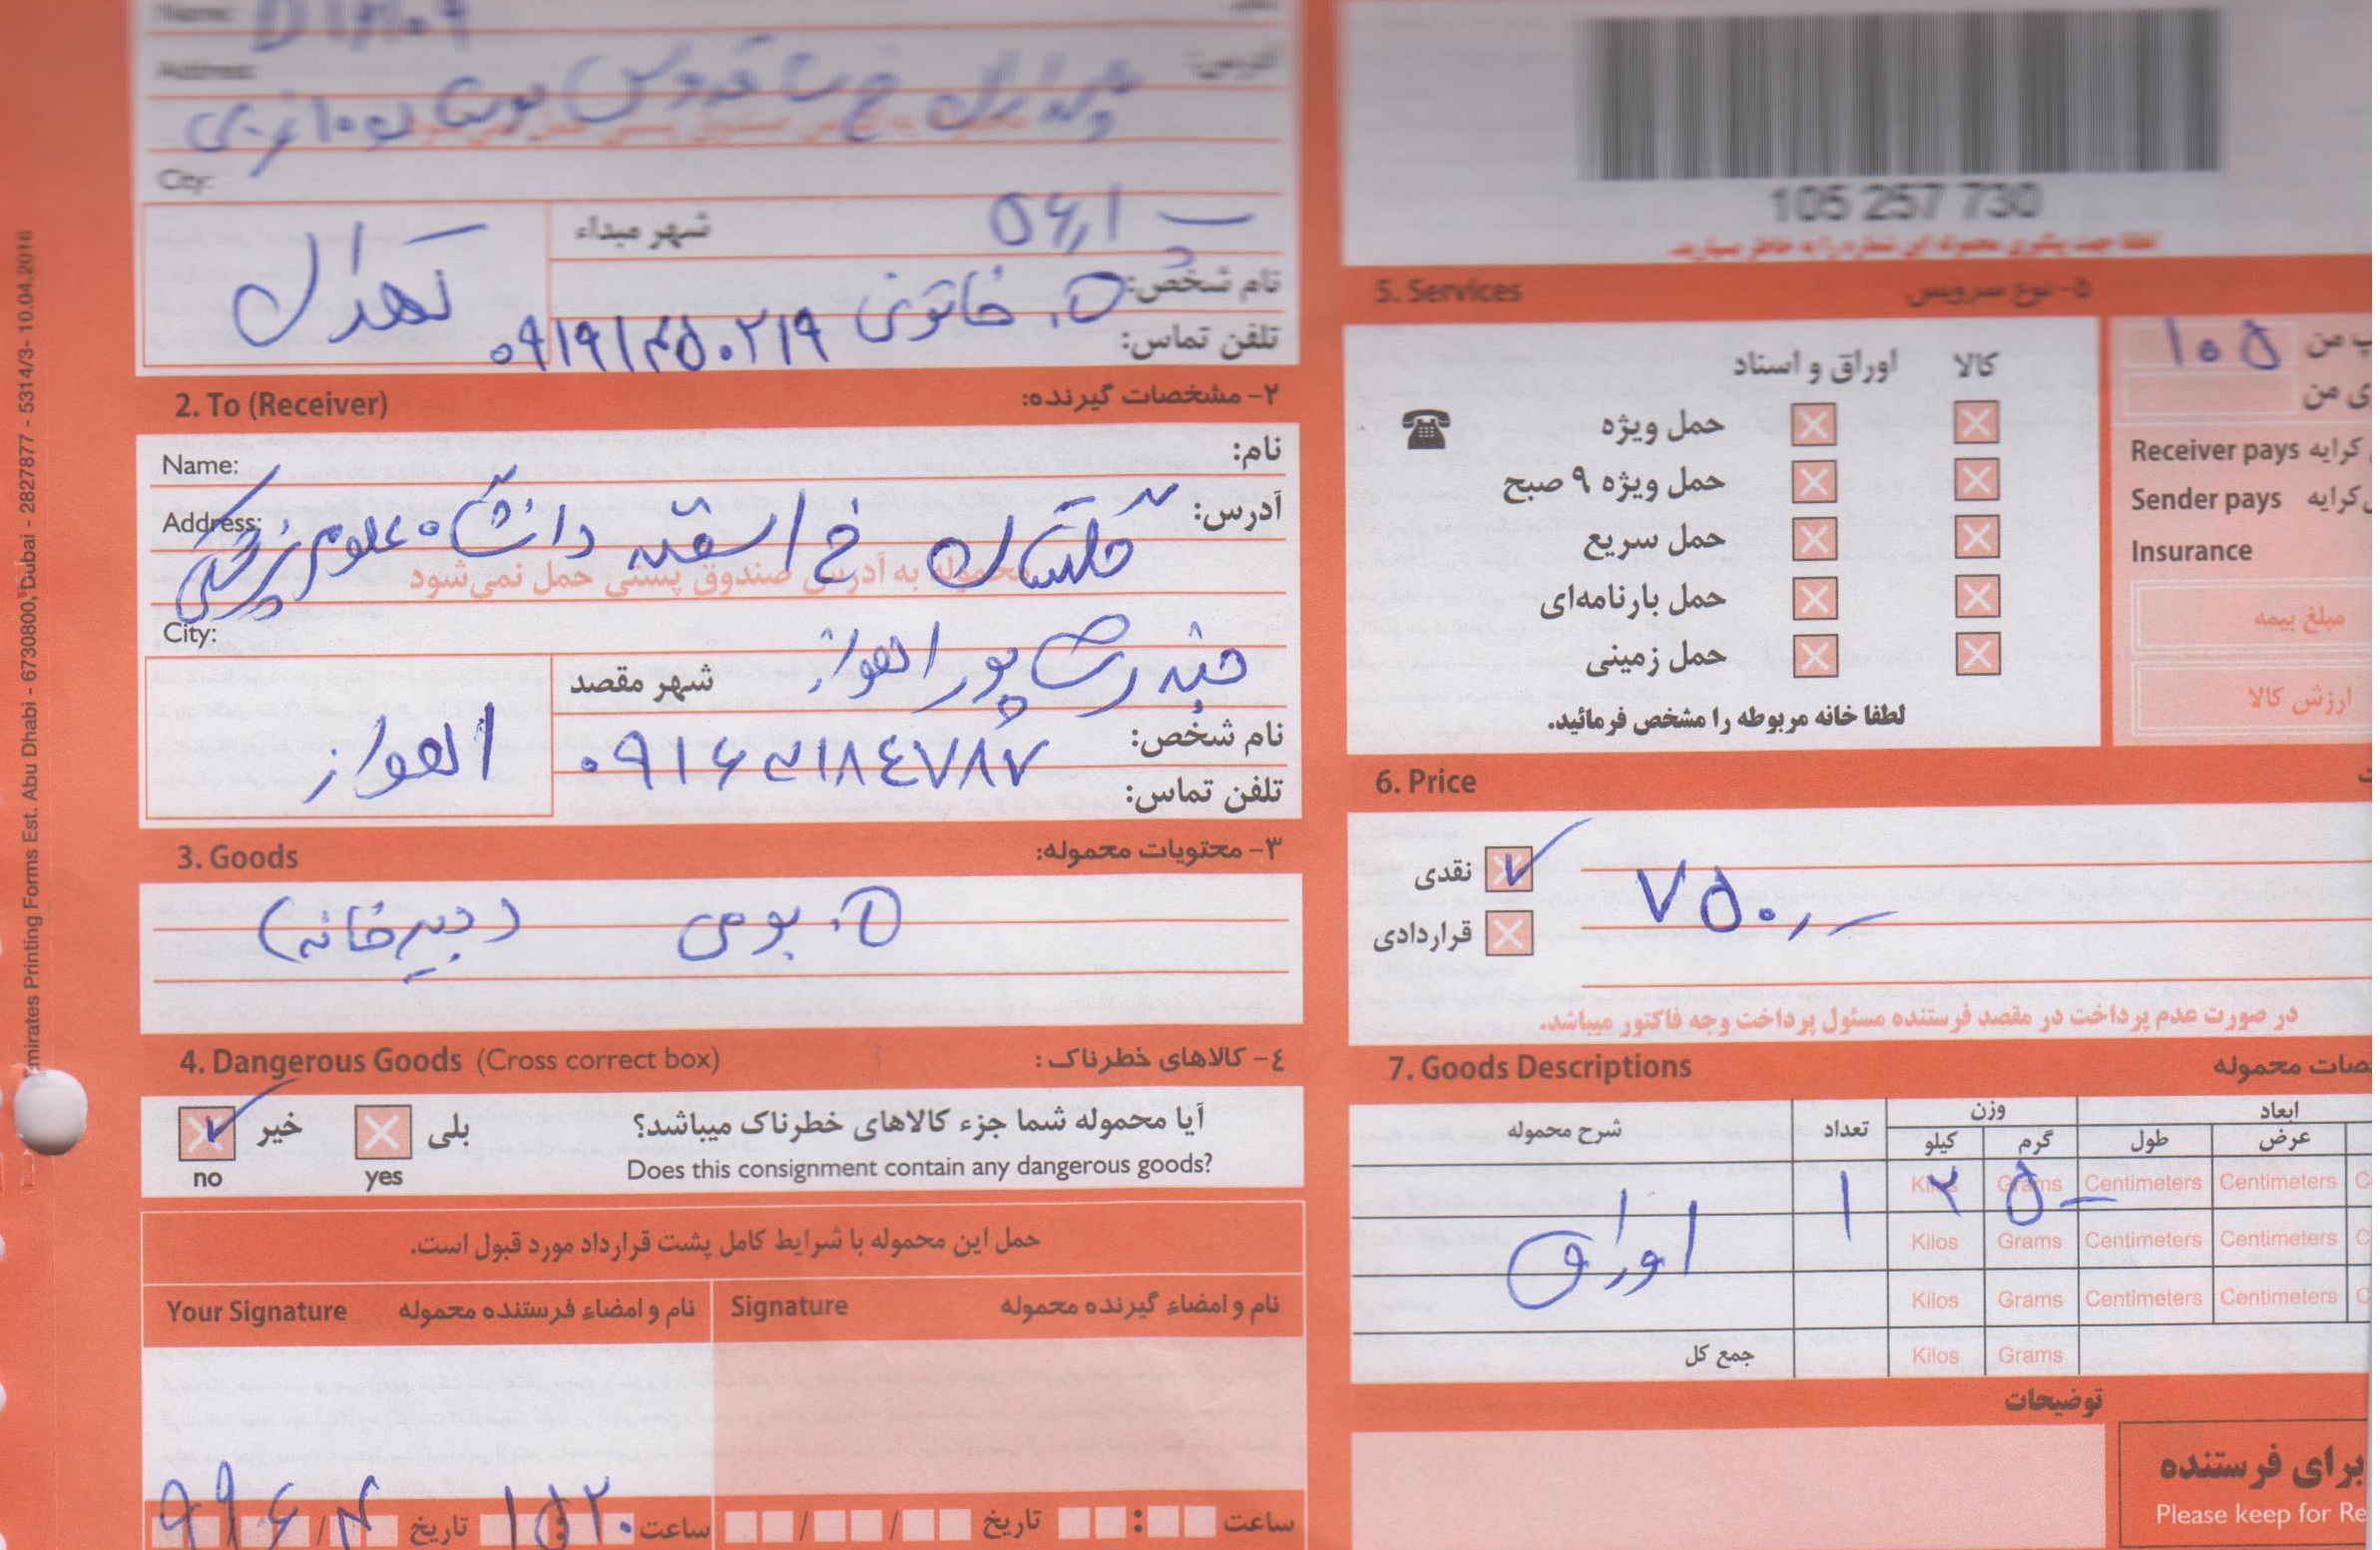 Name:
Address:
آدرس:
City:
شهر مبداء
تهران
نام شخص:
خاتونی
تلفن تماس:
۰۹۱۹۱۴۵۰۲۱۹
2. To (Receiver)
۲- مشخصات گیرنده:
Name:
نام:
Address:
آدرس:
گلستان خ اسفند دانشگاه علوم پزشکی
محموله به آدرس صندوق پستی حمل نمی‌شود
City:
جندی شاپور اهواز
شهر مقصد
اهواز
نام شخص:
تلفن تماس:
3. Goods
۳- محتویات محموله:
بومی (دبیرخانه)
4. Dangerous Goods (Cross correct box)
٤- کالاهای خطرناک:
آیا محموله شما جزء کالاهای خطرناک میباشد؟
بلی
خیر
Does this consignment contain any dangerous goods?
yes
no
حمل این محموله با شرایط کامل پشت قرارداد مورد قبول است.
Your Signature
نام و امضاء فرستنده محموله
Signature
نام و امضاء گیرنده محموله
ساعت
تاریخ
ساعت
تاریخ
Emirates Printing Forms Est. Abu Dhabi - 6730800, Dubai - 2827877 - 5314/3- 10.04.2016
105 257 730
لطفا جهت پیگیری محموله این شماره را به خاطر بسپارید.
5. Services
۵- نوع سرویس
کالا
اوراق و اسناد
حمل ویژه
حمل ویژه ۹ صبح
حمل سریع
حمل بارنامه‌ای
حمل زمینی
لطفا خانه مربوطه را مشخص فرمائید.
من
۱۰۵
من
Receiver pays
کرایه
Sender pays
کرایه
Insurance
مبلغ بیمه
ارزش کالا
6. Price
نقدی
۷۵۰
قراردادی
در صورت عدم پرداخت در مقصد فرستنده مسئول پرداخت وجه فاکتور میباشد.
7. Goods Descriptions
محموله
شرح محموله
تعداد
وزن
ابعاد
کیلو
گرم
طول
عرض
اوراق
۱
۲
۵
Kilos Grams Centimeters Centimeters
Kilos Grams Centimeters Centimeters
Kilos Grams Centimeters Centimeters
جمع کل
Kilos Grams
توضیحات
برای فرستنده
Please keep for Re